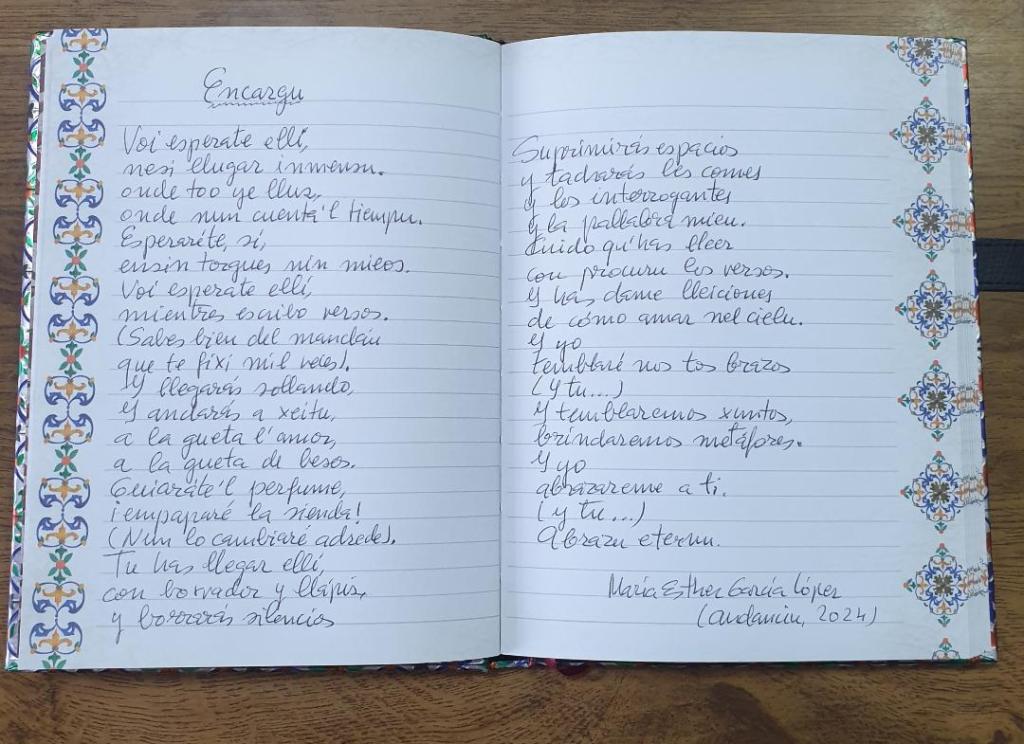 Encargu
Voi esperate ellí,
nesi llugar inmensu.
onde too ye lluz,
onde nun cuenta'l tiempu.
Esperaréte, sí,
ensin torgues nin mieos.
Voi esperate ellí,
mientres escribo versos.
(Sabes bien del mandáu
que te fixi mil veíes).
Y llegarás sollando,
y andarás a xeitu,
a la gueta l'amor,
a la gueta de besos.
Guiaráte'l perfume,
¡empaparé la sienda!
(Nun lo cambiaré adrede).
Tu has llegar ellí,
con borrador y llápiz,
y borrarás silencios
Suprimirás espacios
y tacharás les comes
y los interrogantes
y la pallabra mieu.
Cuido qu'has lleer
con procuru los versos.
Y has dame lleiciones
de cómo amar nel cielu.
Y yo
temblaré nos tos brazos
(Y tu...)
Y temblaremos xuntos,
brindaremos metáfores.
Y yo
abrazareme a ti.
(y tu...)
Abrazu eternu.
María Esther García López
(avdanciu, 2024)